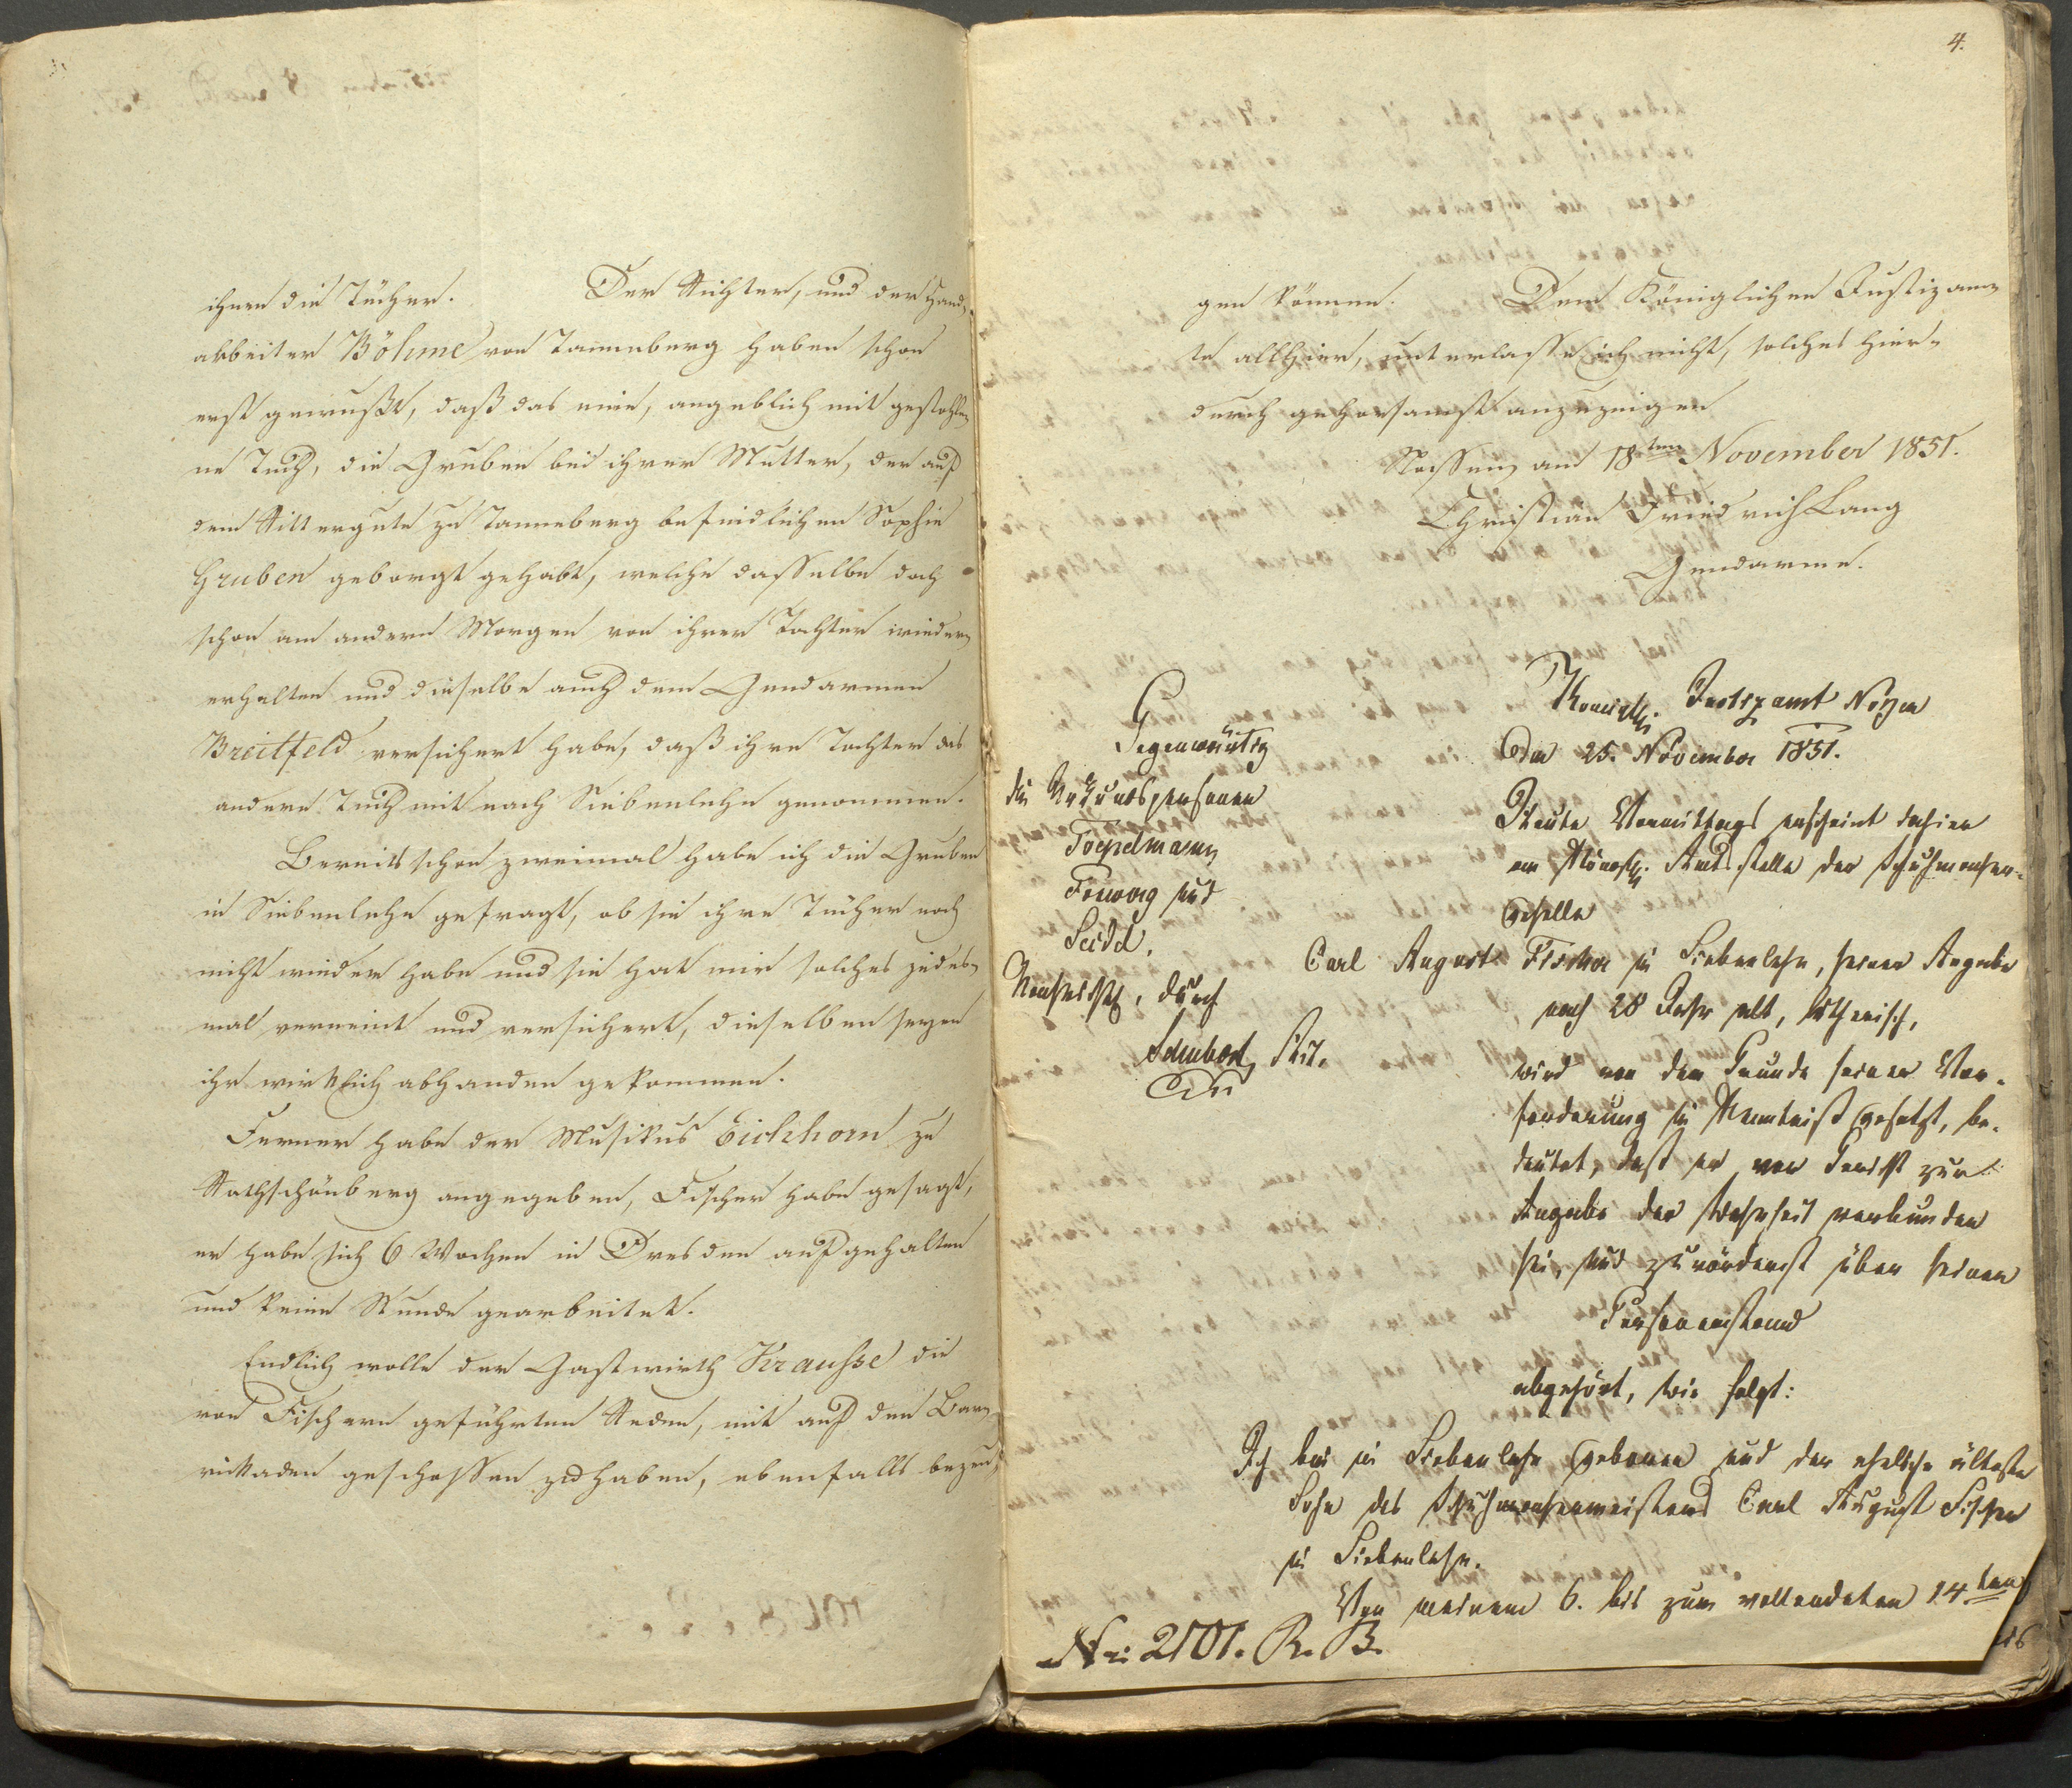 ihren die Tücher. Der Richter, und der Hand-
arbeiter Böhme von Tanneberg haben schon
erst gewußt, daß das eine, angeblich mit gestohle-
ne Tuch, die Gruben bei ihrer Mutter, der auf
dem Rittergute zu Tanneberg befindlichen Sophie
Gruben geborgt gehabt, welche dasselbe doch
schon am andern Morgen von ihrer Tochter wieder-
erhalten und dieselbe auch dem Gendarmen
Breitfeld versichert habe, daß ihre Tochter das
andere Tuch mit nach Siebenlehn genommen.
Bereits schon zweimal habe ich die Gruben
in Siebenlehn gefragt, ob sie ihre Tücher noch
nicht wieder habe und sie hat mir solches jedes-
mal verneint und versichert, dieselben seyen
ihr wirklich abhanden gekommen.
Ferner habe der Musikus Eichhorn zu
Rothschönberg angegeben, Fischer habe gesagt,
er habe sich 6 Wochen in Dresden aufgehalten
und keine Stunde gearbeitet.
Endlich wolle der Gastwirth Krausse die
von Fischern geführten Reden, mit auf den Bar-
rikaden geschossen zu haben, ebenfalls bezeu-
4.
gen können. Dem Königlichen Justizam-
te allhier, unterlasse ich nicht, solches hier-
durch gehorsamst anzuzeigen
Nossen, am 18ten November 1851.
Christian Friedrich Lang
Gendarme.
Königl. Justizamt Noßen
Den 25. November 1851.
Gegenwärtig
die Urkundspersonen
Toepelmann
und
Seidel,
durch
Schubert, Akt.
Heute Vormittags erscheint dahier
an Königl. Amtsstelle der Schuhmacher-
geselle
Carl August Fischer in Siebenlehn, seiner Angabe
nach 28 Jahr alt, lutherisch,
wird von dem Grunde seiner Vor-
forderung in Kenntniß gesetzt, be-
deutet, daß er vor Gericht zur
Angabe der Wahrheit verbunden
sei, und zuvörderst über seinen
Personenstand
abgehört, wie folgt:
Ich bin in Siebenlehn geboren und der eheliche älteste
Sohn des Schuhmachermeisters Carl August Fischer
in Siebenlehn.
Von meinem 6. bis zum vollendeten 14ten
No: 2101. R. B.